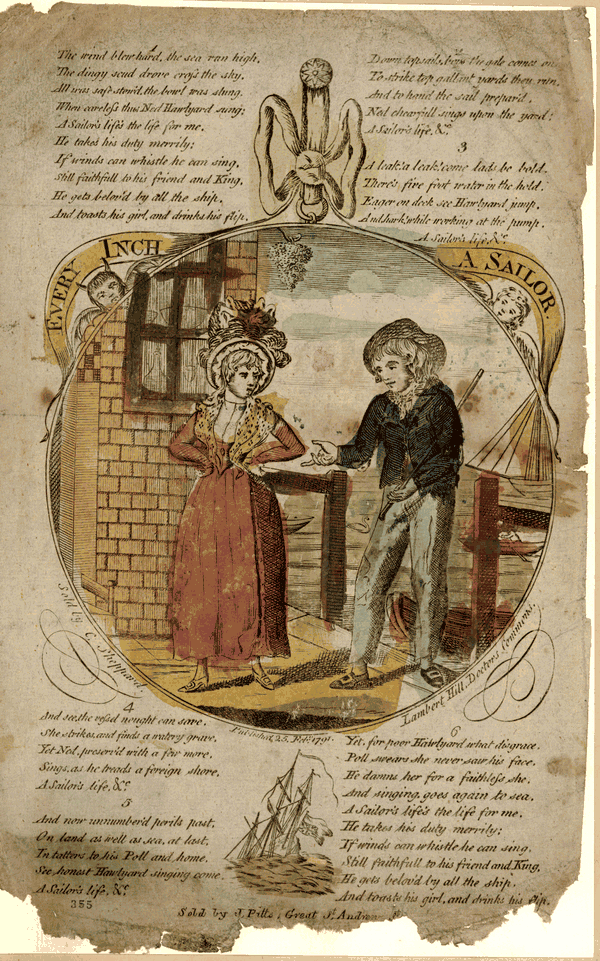 The wind blew hard, the sea ran high,
The dingy scud drove cross the sky,
All was safe stow'd, the bowl was slung,
When careless thus Ned Hawlyard sung;
A Sailor's life's the life for me,
He takes his duty merrily;
If winds can whistle he can sing,
Still faithfull to his friend and King,
He gets belov'd by all the ship,
And toasts his girl, and drinks his flip.
Down topsails, boys the gale comes on,
To strike top gallant yards they run,
And to hand the sail prepar'd,
Ned chearfull sings upon the yard;
A Sailor's life, &c.
3
A leak! a leak! come lads be bold,
There's five foot water in the hold,
Eager on deck see Hawlyard jump,
And hark, while working at the pump,
A Sailor's life, &c.
EVERY INCH
A SAILOR
Sold by C. Sheppard
Publish'd 25. Feb. 1791.
Lambert Hill, Doctors Commons.
4
And see, the vessel nought can save,
She strikes, and finds a watery grave,
Yet Ned, preserv'd with a few more,
Sings, as he treads a foreign shore,
A Sailor's life, &c.
5
And now unnumber'd perils past,
On land as well as sea, at last,
In tatters to his Poll and home,
See honest Hawlyard singing come,
A Sailor's life, &c.
355
6
Yet, for poor Hawlyard what disgrace,
Poll swears she never saw his face,
He damns her for a faithless she,
And singing goes again to sea,
A Sailor's life's the life for me,
He takes his duty merrily;
If winds can whistle he can sing,
Still faithfull to his friend and King,
He gets belov'd by all the ship,
And toasts his girl, and drinks his flip.
Sold by J. Pitts, Great St. Andrew